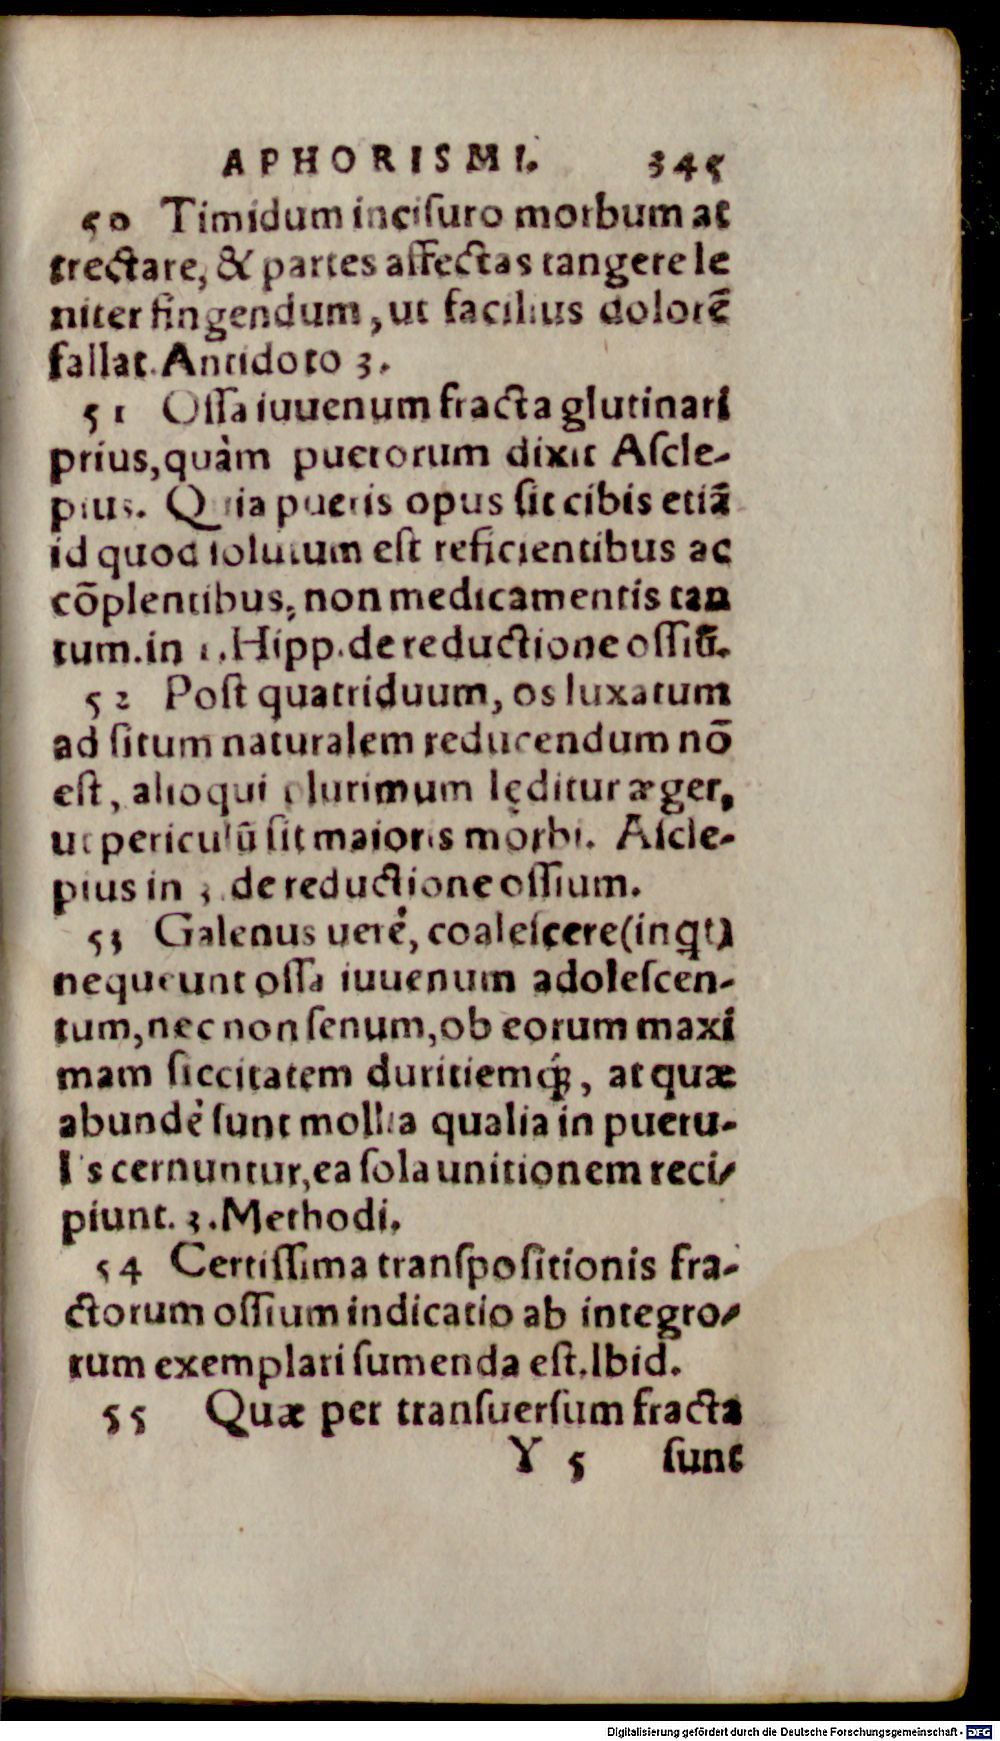 APHORISMI. 345
50 Timidum incisuro morbum at
trectare, & partes affectas tangere le
niter fingendum, ut facilius dolorē
fallat. Antidoto 3.
51 Ossa iuuenum fracta glutinari
prius, quàm puerorum dixit Ascle-
pius. Quia pueris opus sit cibis etiā
id quod solutum est reficientibus ac
cōplentibus, non medicamentis tan
tum. in 1. Hipp. de reductione ossiū.
52 Post quatriduum, os luxatum
ad situm naturalem reducendum nō
est, alioqui plurimum lęditur æger,
ut periculū sit maioris morbi. Ascle-
pius in 3. de reductione ossium.
53 Galenus uerè, coalescere (inqt)
nequeunt ossa iuuenum adolescen-
tum, nec non senum, ob eorum maxi
mam siccitatem duritiemq́;, at quæ
abundè sunt mollia qualia in pueru-
lis cernuntur, ea sola unitionem reci-
piunt. 3. Methodi.
54 Certissima transpositionis fra-
ctorum ossium indicatio ab integro-
rum exemplari sumenda est. Ibid.
55 Quæ per transuersum fracta
Y 5 sunt
Digitalisierung gefördert durch die Deutsche Forschungsgemeinschaft - DFG